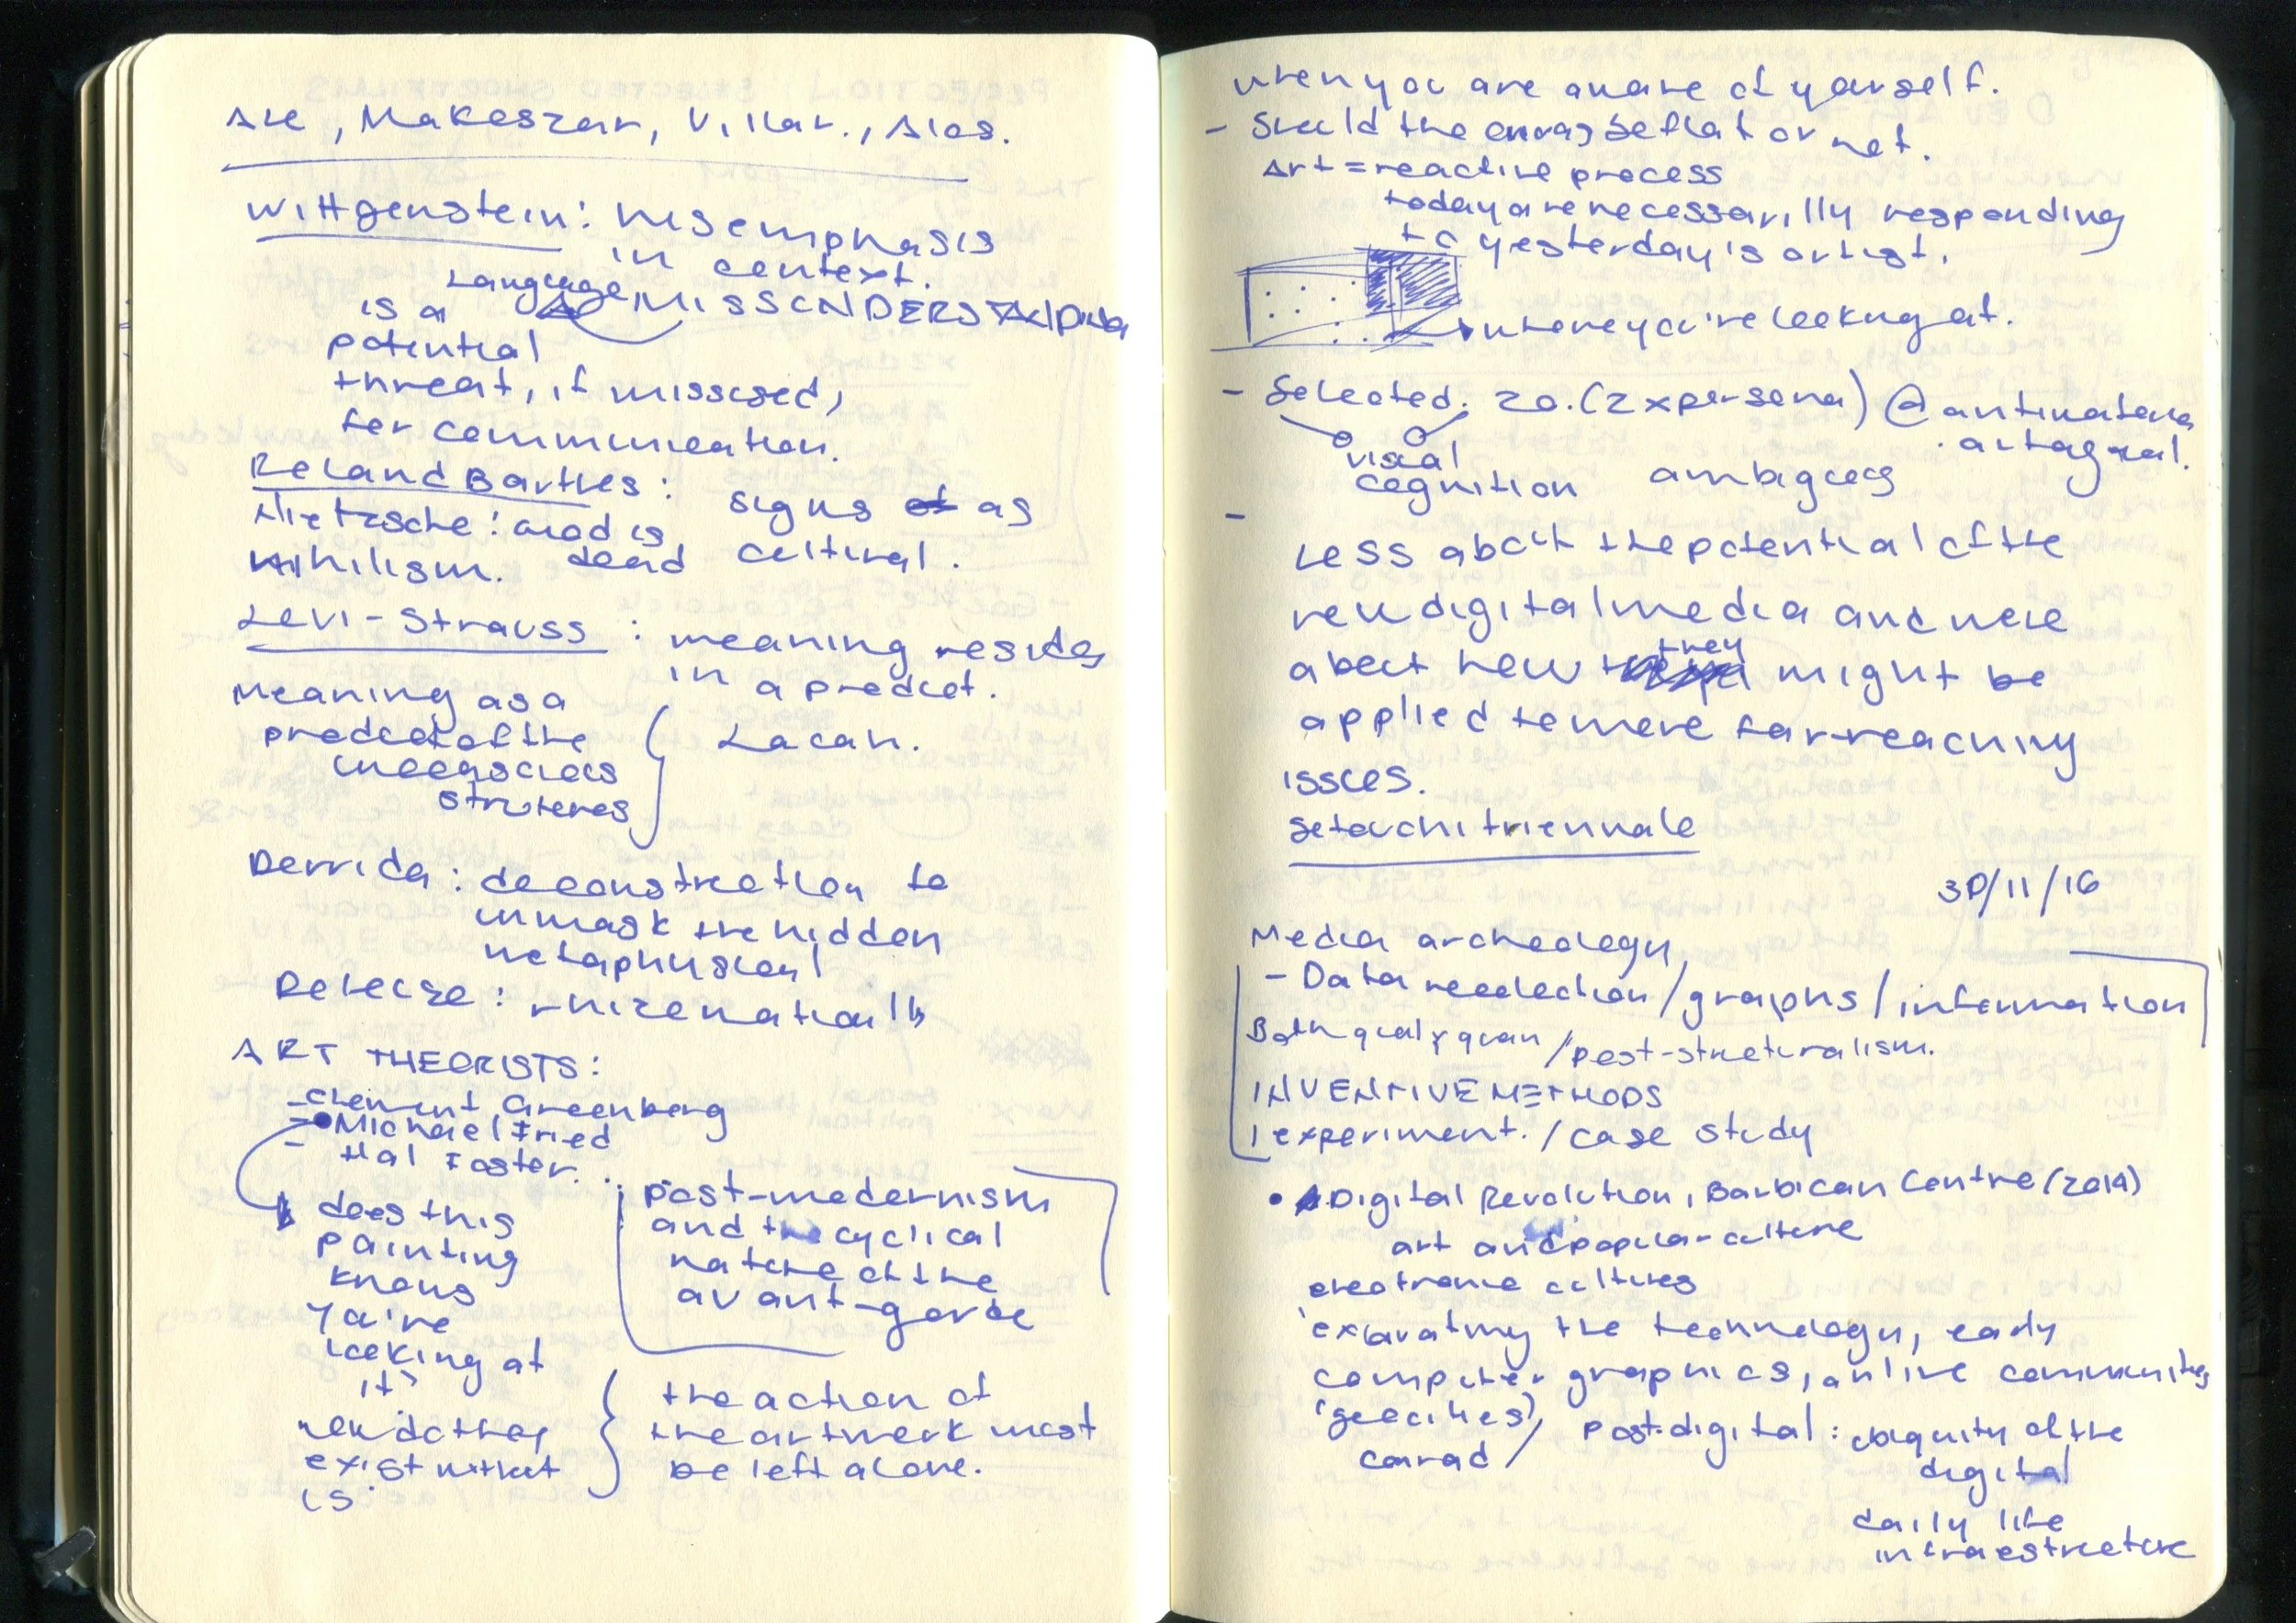 Ale, Makeszar, Villar., Alos.
Wittgenstein: his emphasis
in context.
Language MISSUNDERSTANDING
is a
potential
threat, if missused,
for communication.
Roland Barthes:
signs of as
cultural.
Nietzsche: God is
dead
nihilism.
Levi-Strauss : meaning resides
in a product.
Meaning as a
product of the
unconscious
strutures
Lacan.
Derrida: deconstruction to
unmask the hidden
metaphysical
Deleuze:
ART THEORISTS:
- Clement Greenberg
- Michael Fried
- Hal Foster.
does this
painting
knows
you're
looking at
it?
how do they
exist without
us.
post-modernism
and the cyclical
nature of the
avant-garde
the action of
the artwork must
be left alone.
when you are aware of yourself.
- Should the canvas be flat or not.
Art = reactive process
today are necessarilly responding
to yesterday's artist.
where you're looking at.
- Selected. 20. (2 x persona) @
visual
cognition
-
Less about the potential of the
new digital media and more
about how they might be
applied to more far-reaching
issues.
Setouchi triennale
30/11/16
Media archeology
- Data recolection / graphs / information
Both qual y quan / post-structuralism.
INVENTIVE METHODS
1 experiment. / case study
• Digital Revolution, Barbican Centre (2014)
art and popular culture
electronic cultures
'excavating the technology, early
computer graphics, online communities
(geocities)
conrad /
post-digital : ubiquity of the
digital
daily life
infraestructure